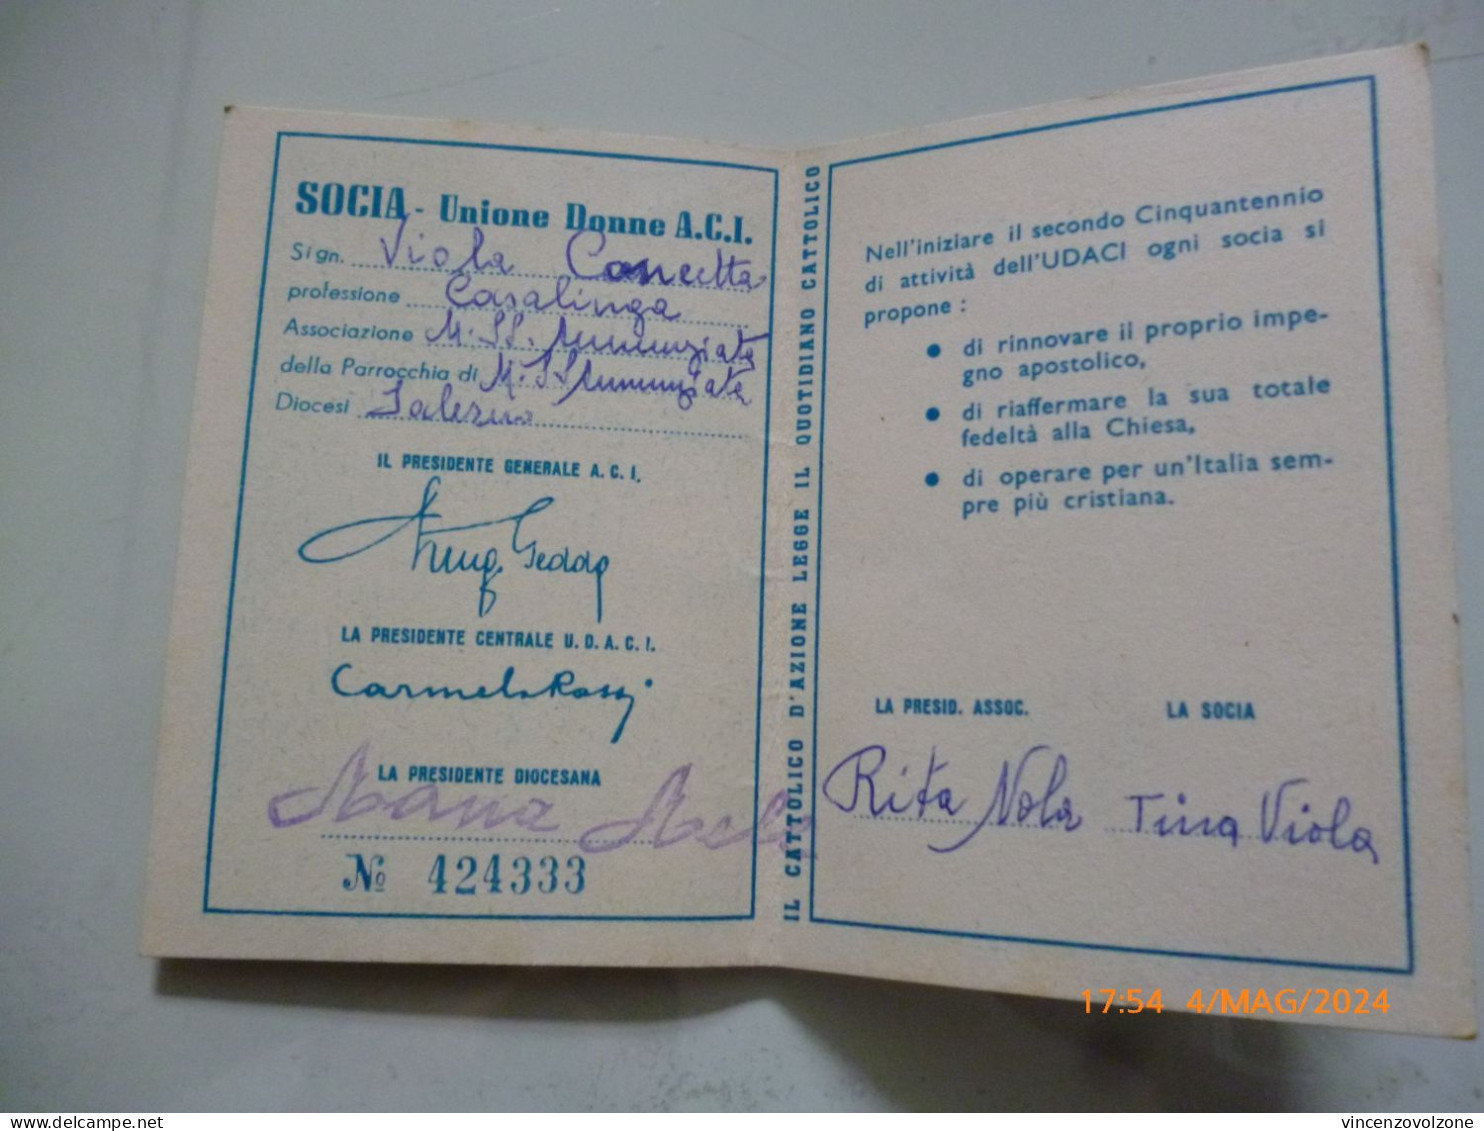 SOCIA - Unione Donne A.C.I.
Sign. Viola Concetta
professione Casalinga
Associazione M. SS. Annunziata
della Parrocchia di M. SS Annunziata
Diocesi Salerno
IL PRESIDENTE GENERALE A. C. I.
Gedda
LA PRESIDENTE CENTRALE U. D. A. C. I.
Carmela Rossi
LA PRESIDENTE DIOCESANA
№ 424333
IL CATTOLICO D'AZIONE LEGGE IL QUOTIDIANO CATTOLICO
Nell'iniziare il secondo Cinquantennio
di attività dell'UDACI ogni socia si
propone :
● di rinnovare il proprio impe-
gno apostolico,
● di riaffermare la sua totale
fedeltà alla Chiesa,
● di operare per un'Italia sem-
pre più cristiana.
LA PRESID. ASSOC. LA SOCIA
Rita Nola Tina Viola
17:54 4/MAG/2024
delcampe.net
vincenzovolzone